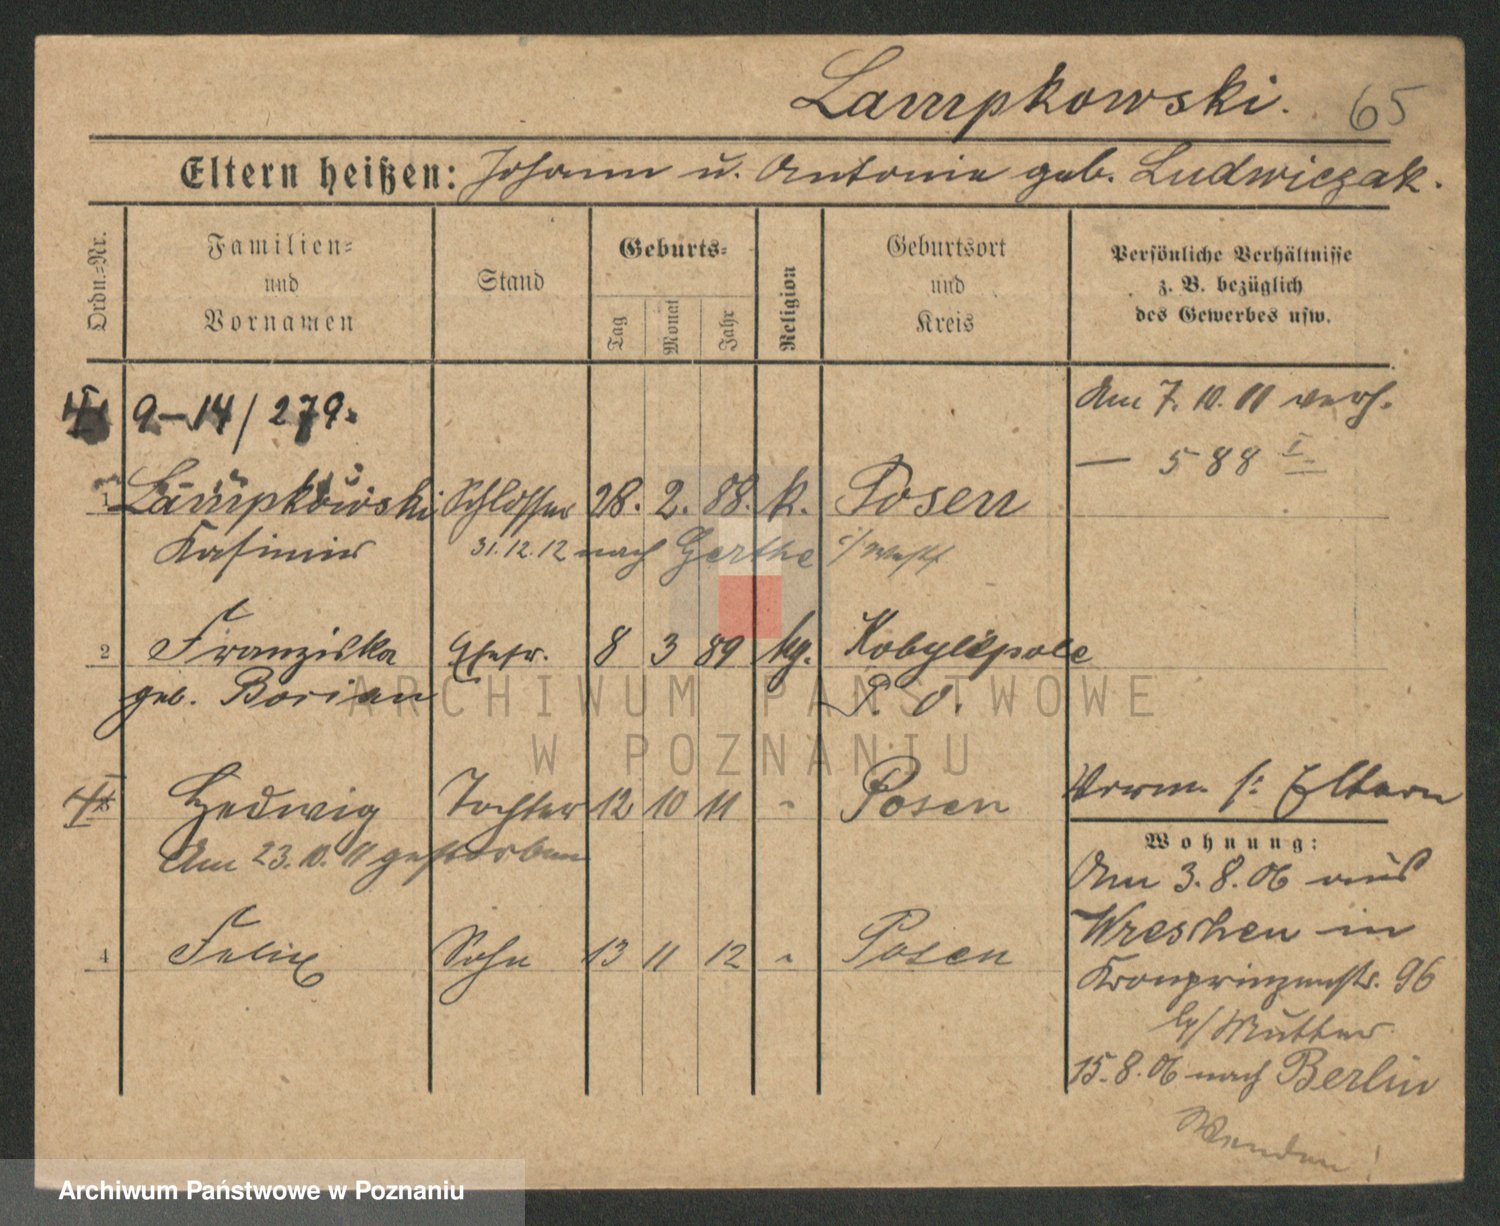 Lampkowski. 65
Eltern heißen: Johann u. Antonie geb. Ludwiczak.
Ordn.-Nr.
Familien-
und
Vornamen
Stand
Geburts-
Tag
Monat
Jahr
Religion
Geburtsort
und
Kreis
Persönliche Verhältnisse
z. B. bezüglich
des Gewerbes usw.
9-14/279.
Am 7. 10. 11 verh.
— 588 I
1 Lampkowski Schlosser 28. 2. 88. k. Posen
Kasimir 31.12.12 nach Gerthe i/Westf
2 Franziska Ehefr. 8 3 89 kg. Kobylepole
geb. Borian P. O.
3 Hedwig Tochter 12 10 11 " Posen
Am 23. 10. 11 gestorben
4 Felix Sohn 13 11 12 " Posen
Verm. s: Eltern
Wohnung:
Am 3. 8. 06 aus
Wreschen in
Kronprinzenstr. 96
b/ Mutter
15. 8. 06 nach Berlin
Wenden!
ARCHIWUM PAŃSTWOWE
W POZNANIU
Archiwum Państwowe w Poznaniu